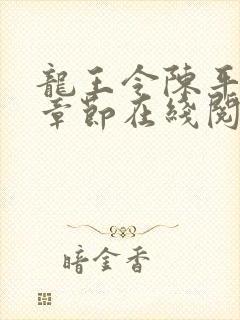 龍王令陳平
章節在綫閱
暗金香